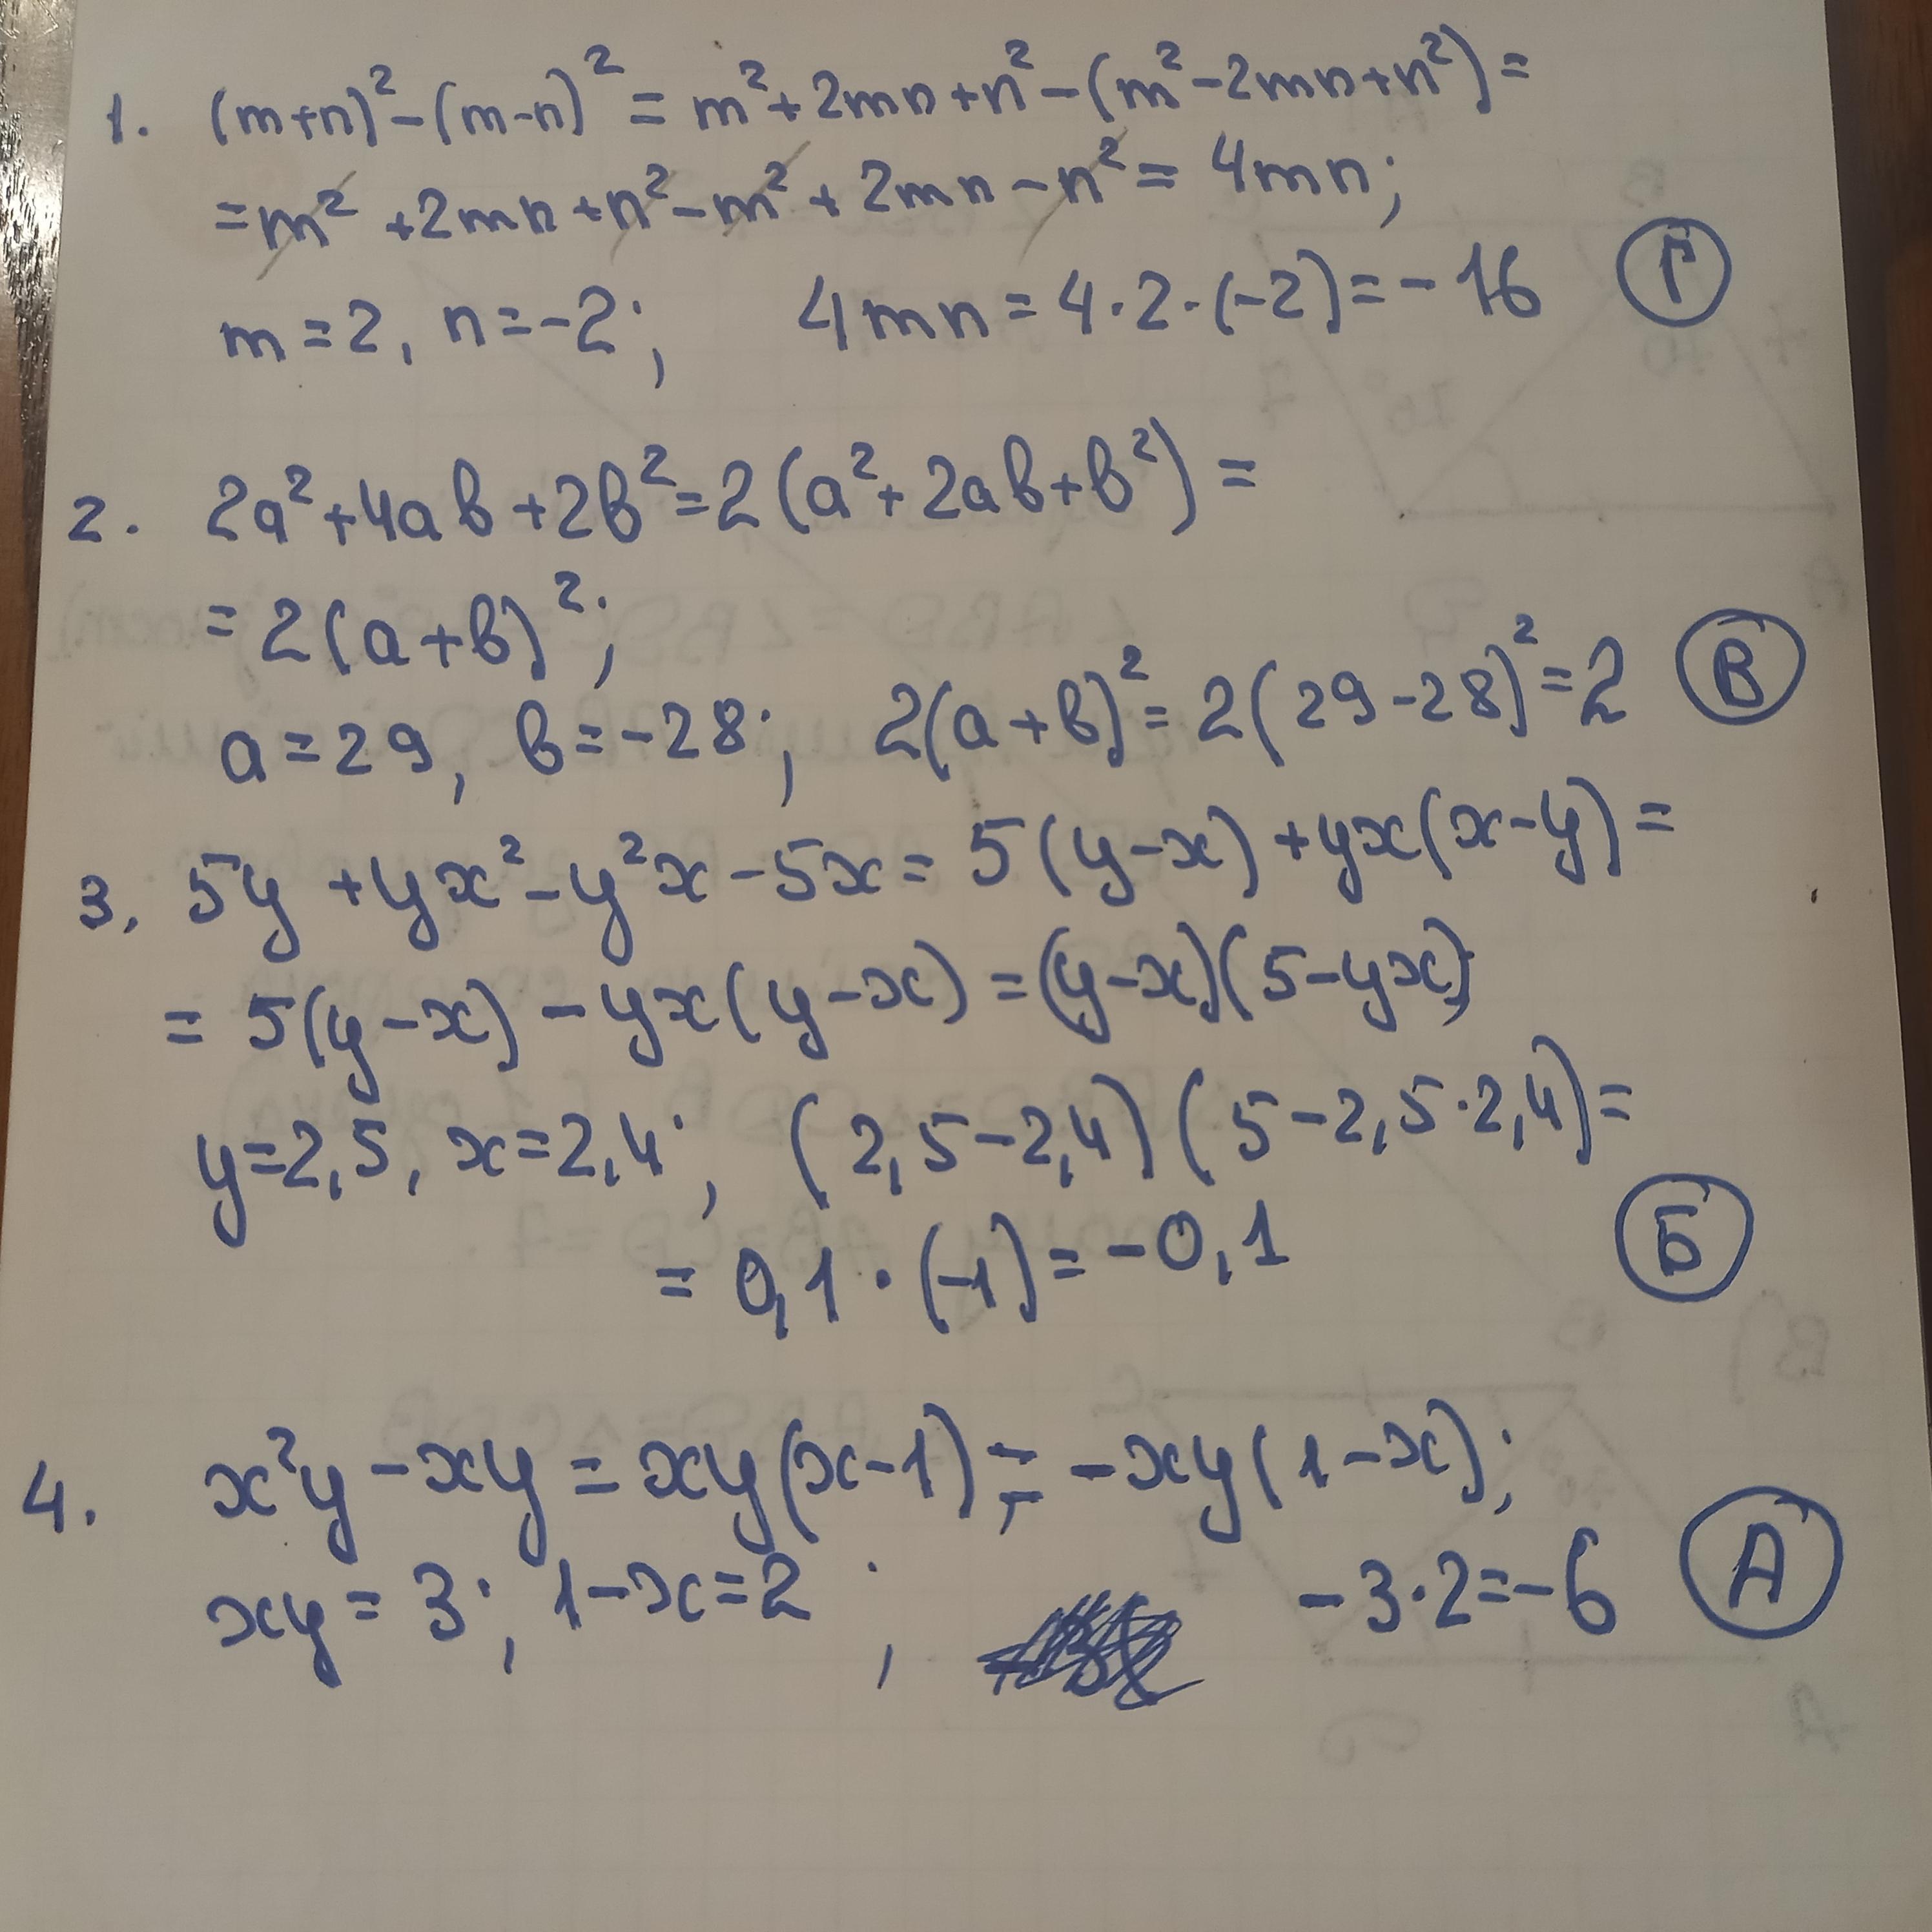 1. (m+n)²-(m-n)² = m²+2mn+n²-(m²-2mn+n²)=
=m²+2mn+n²-m²+2mn-n²= 4mn;
m=2, n=-2; 4mn=4·2·(-2)=-16 Г
2. 2a²+4aв+2в²=2(a²+2aв+в²)=
=2(a+в)²;
a=29, в=-28; 2(a+в)²=2(29-28)²=2 В
3. 5y+yx²-y²x-5x=5(y-x)+yx(x-y)=
=5(y-x)-yx(y-x)=(y-x)(5-yx);
y=2,5, x=2,4; (2,5-2,4)(5-2,5·2,4)=
=0,1·(-1)=-0,1 Б
4. x²y-xy=xy(x-1)=-xy(1-x);
xy=3; 1-x=2; -3·2=-6 А